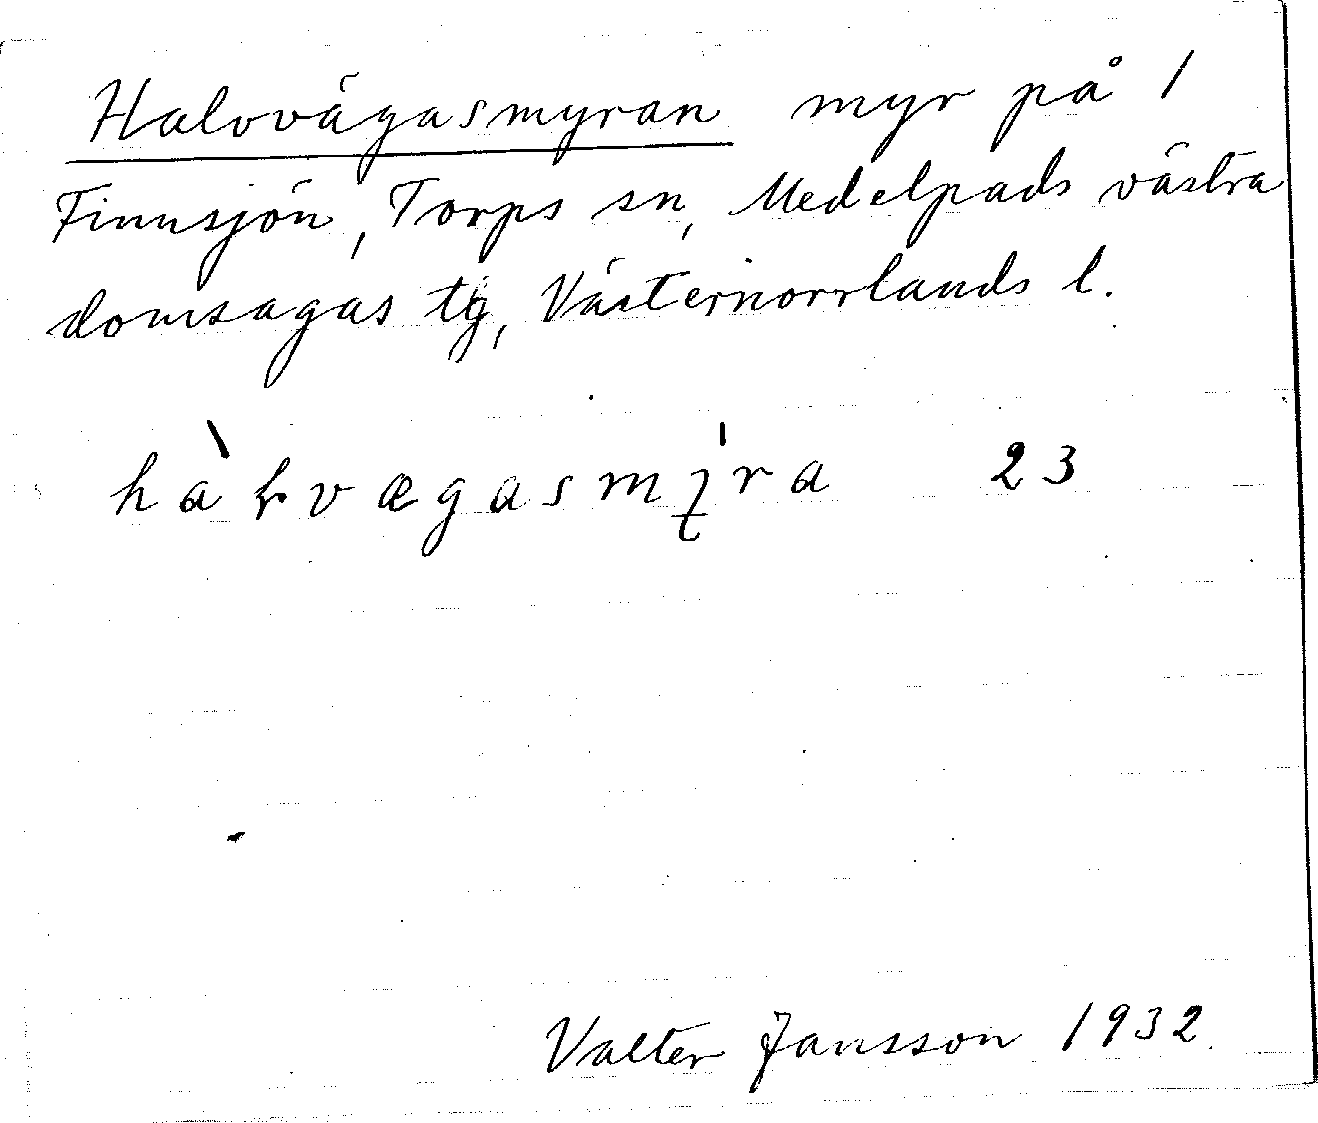 Halvvägasmyran myr på 1
Finnsjön, Torps sn, Medelpads västra
domsagas tg, Västernorrlands l.
hàƚvægasmy̨̍ra 23
Valter Jansson 1932